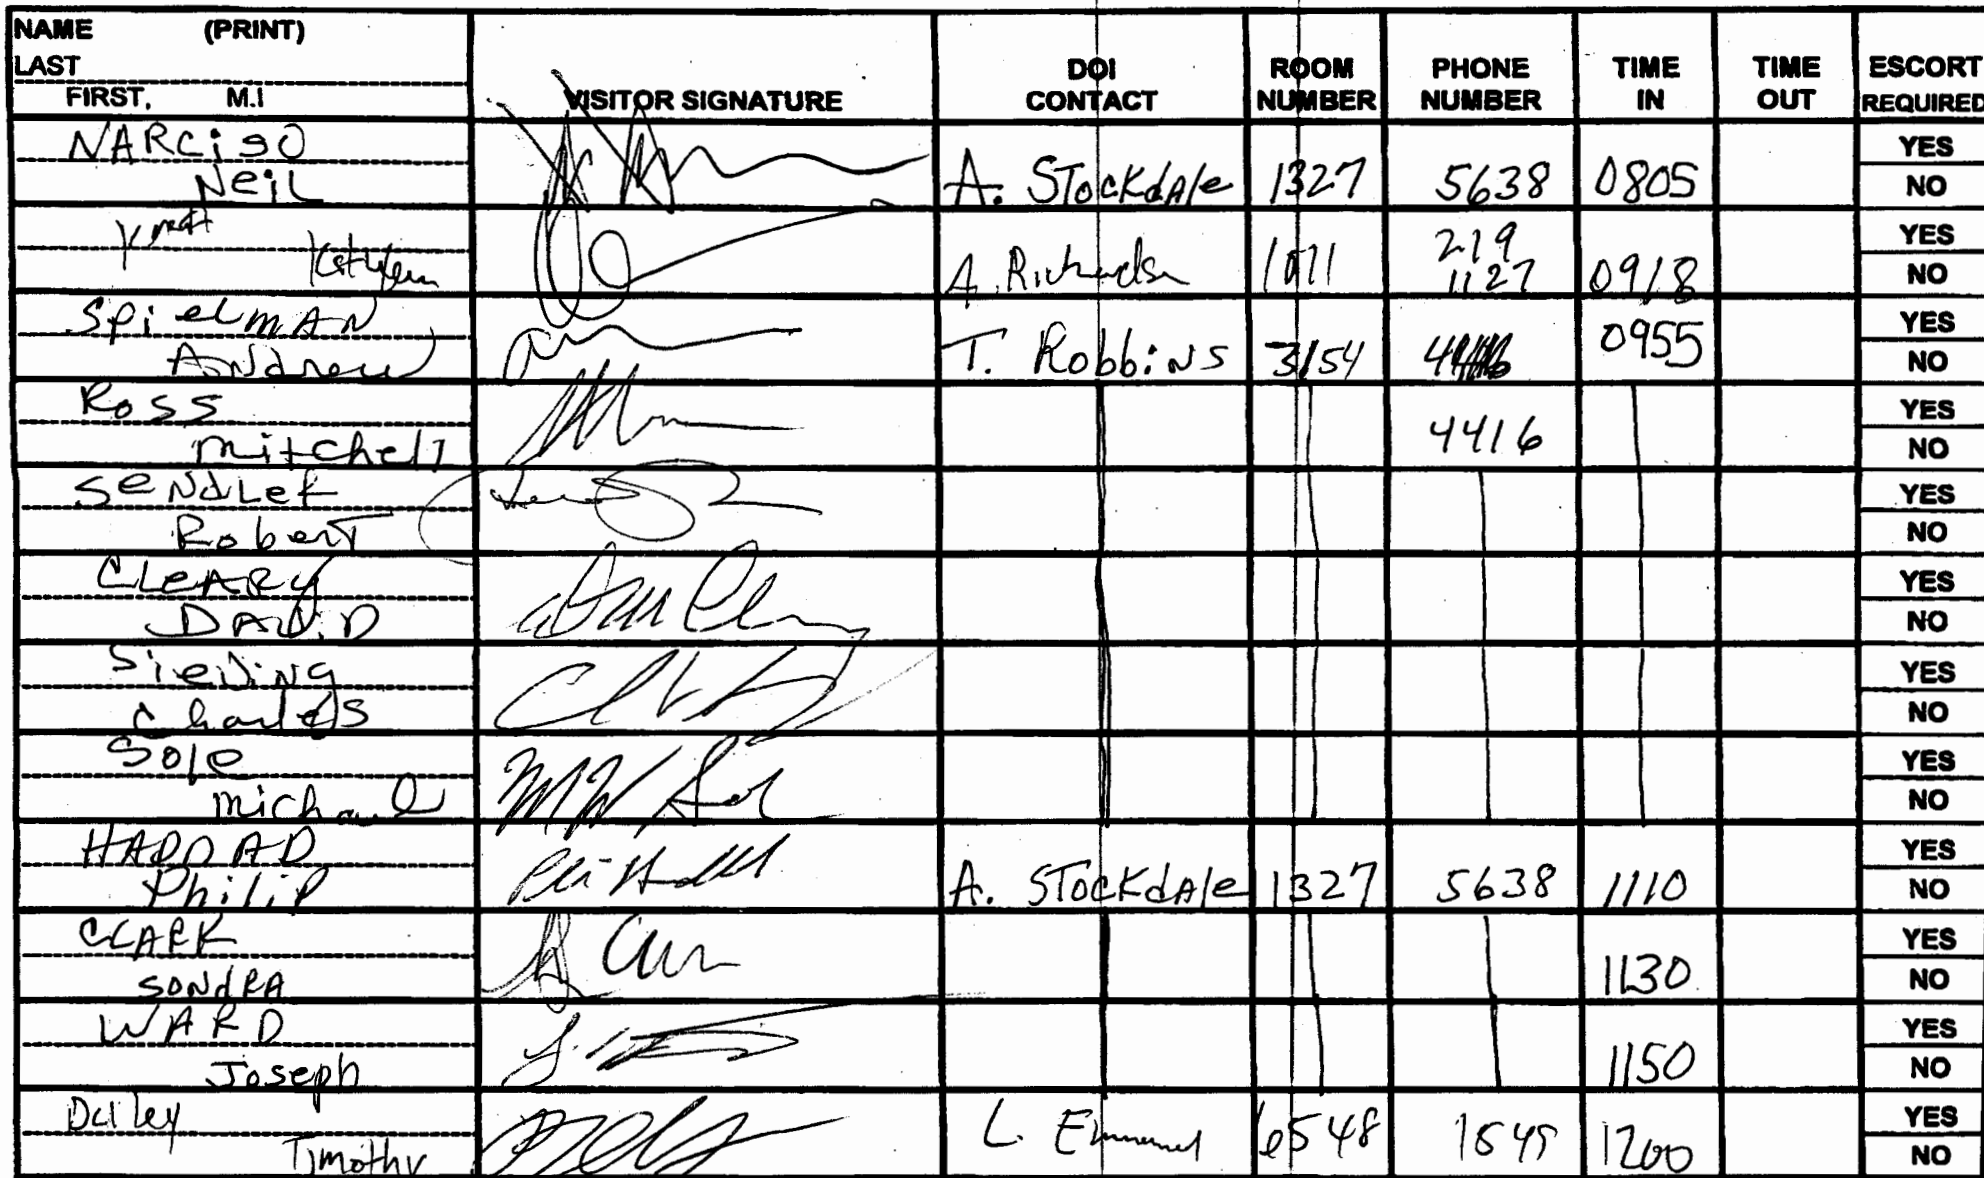 NAME (PRINT)
LAST
FIRST, M.I
VISITOR SIGNATURE
DOI CONTACT
ROOM NUMBER
PHONE NUMBER
TIME IN
TIME OUT
ESCORT REQUIRED
NARCISO
NeiL
A. STockdAle 1327 5638 0805
YES
NO
A. Richardson 219
1127 0918
YES
NO
SpielmAN
ANdrew
T. RobbiNS 3154 0955
YES
NO
Ross
mitchell
4416
YES
NO
SeNdLer
RoberT
YES
NO
CLeARY
DAViD
YES
NO
SieViNg
Charles
YES
NO
Sole
michael
YES
NO
HADDAD
Philip
A. STockdAle 1327 5638 1110
YES
NO
CLARK
SONdRA
1130
YES
NO
WARD
Joseph
1150
YES
NO
Dailey
Timothy
L. 6548 1200
YES
NO